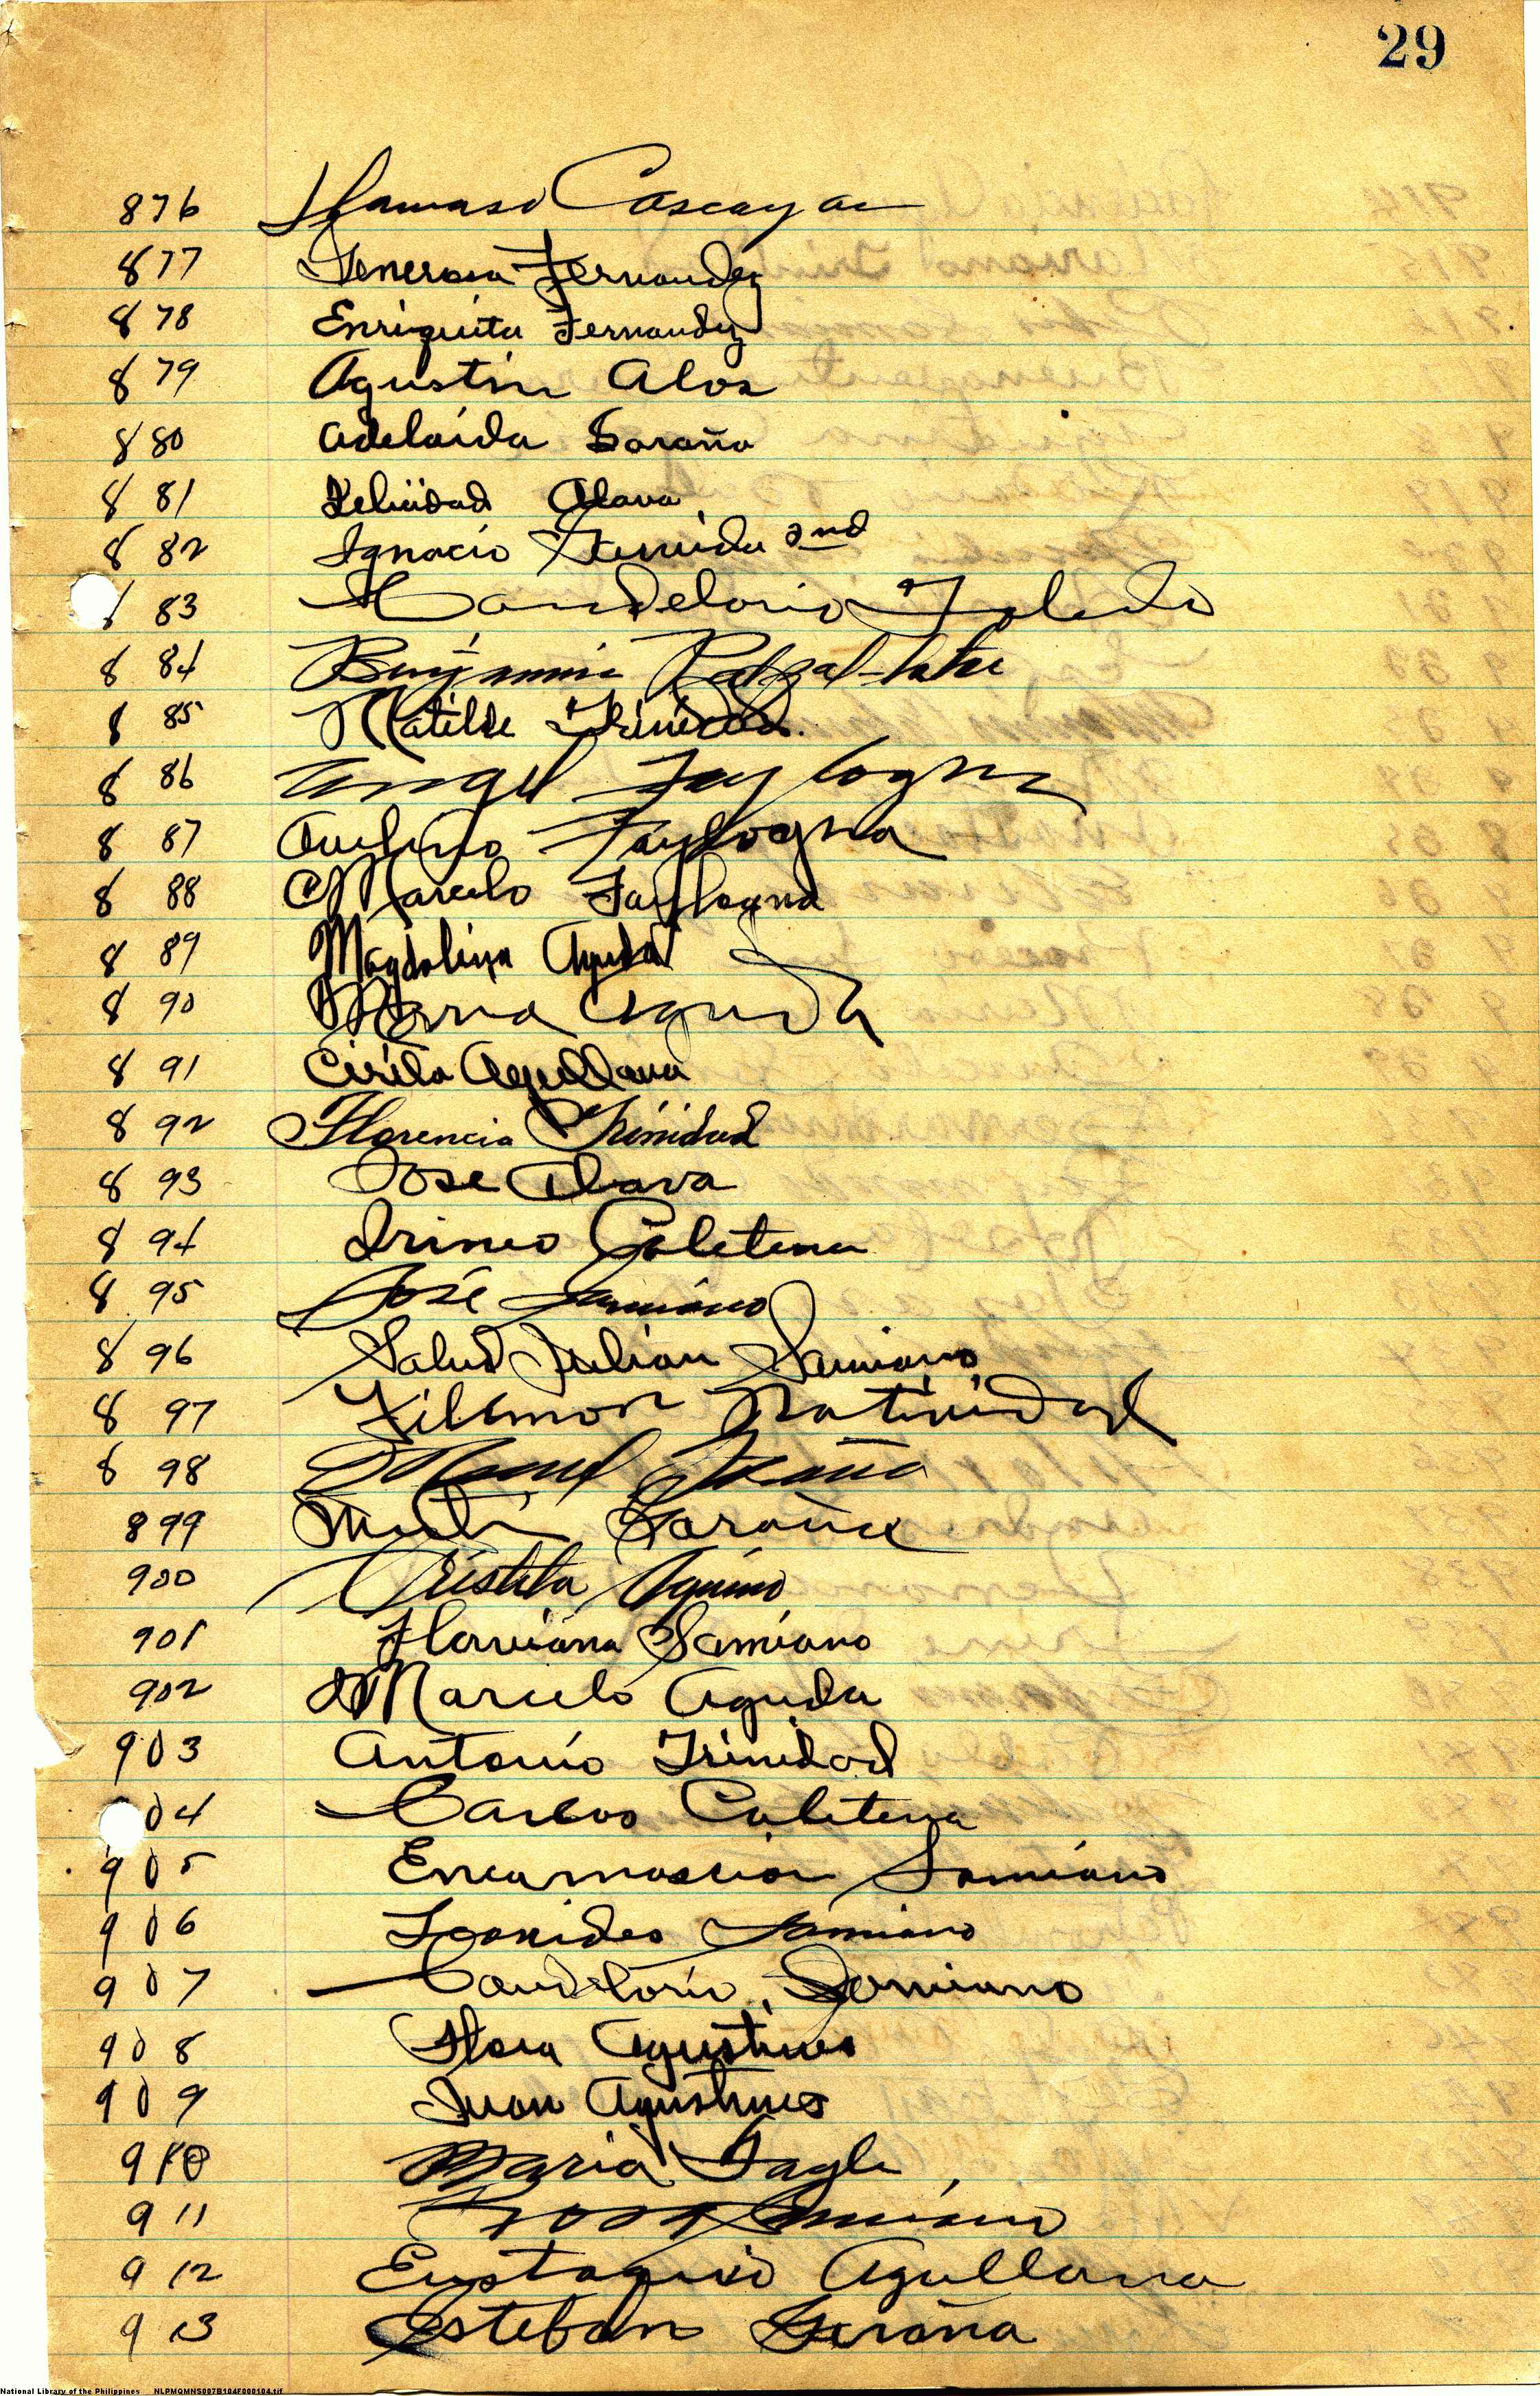 29
876 Damaso Cascayan
877 Generosa Fernandez
878 Enriquita Fernandez
879 Agustin Alos
880 Adelaida Soraña
881 Felicidad Alava
882 Ignacio 2nd
83 Candelario Toledo
884 Benjamin
885 Matilde Trinidad.
886 Angel Taylogna
887 Avelino Taylogna
888 Marcelo Taylogna
889 Magdalina Aguda
890 Maria Aguda
891 Cirila Agullana
892 Florencia Trinidad
893 Jose Alava
894 Irineo Coletena
895 José Samiano
896 Salud Julian Samiano
897 Filemon Natividad
898 Manuel Soraña
899 Soraña
900 Cristita Aquino
901 Flaviana Samiano
902 Marcelo Aguda
903 Antonio Trinidad
04 Carlos Coletena
905 Encarnascion Samiano
906 Leonides Samiano
907 Candelario Samiano
908 Flora Agustines
909 Juan Agustines
910 Maria Tagle
911 Rosa Samiano
912 Eustaquio Agullana
913 Esteban Geraña
National Library of the Philippines NLPMQMNS007B104F000104.tif